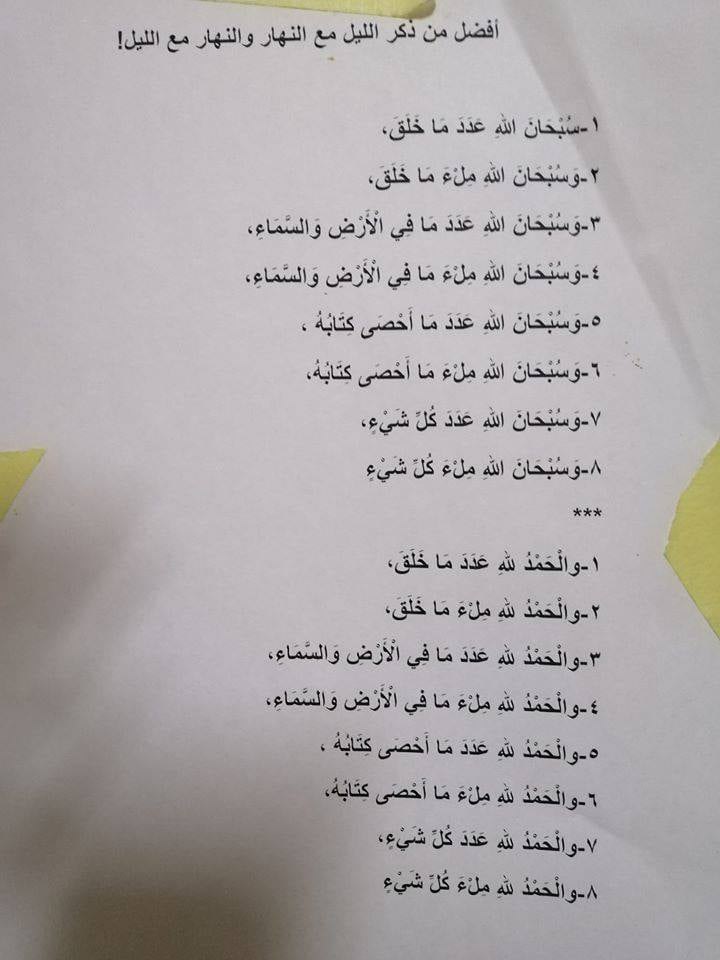 أفضل من ذكر الليل مع النهار والنهار مع الليل!
١-سُبْحَانَ اللهِ عَدَدَ مَا خَلَقَ،
٢-وَسُبْحَانَ اللهِ مِلْءَ مَا خَلَقَ،
٣-وَسُبْحَانَ اللهِ عَدَدَ مَا فِي الْأَرْضِ وَالسَّمَاءِ،
٤-وَسُبْحَانَ اللهِ مِلْءَ مَا فِي الْأَرْضِ وَالسَّمَاءِ،
٥-وَسُبْحَانَ اللهِ عَدَدَ مَا أَحْصَى كِتَابُهُ ،
٦-وَسُبْحَانَ اللهِ مِلْءَ مَا أَحْصَى كِتَابُهُ،
٧-وَسُبْحَانَ اللهِ عَدَدَ كُلِّ شَيْءٍ،
٨-وَسُبْحَانَ اللهِ مِلْءَ كُلِّ شَيْءٍ
***
١-والْحَمْدُ للهِ عَدَدَ مَا خَلَقَ،
٢-والْحَمْدُ للهِ مِلْءَ مَا خَلَقَ،
٣-والْحَمْدُ للهِ عَدَدَ مَا فِي الْأَرْضِ وَالسَّمَاءِ،
٤-والْحَمْدُ للهِ مِلْءَ مَا فِي الْأَرْضِ وَالسَّمَاءِ،
٥-والْحَمْدُ للهِ عَدَدَ مَا أَحْصَى كِتَابُهُ ،
٦-والْحَمْدُ للهِ مِلْءَ مَا أَحْصَى كِتَابُهُ،
٧-والْحَمْدُ للهِ عَدَدَ كُلِّ شَيْءٍ،
٨-والْحَمْدُ للهِ مِلْءَ كُلِّ شَيْءٍ